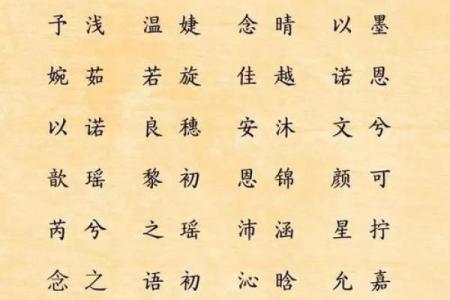 予浅 温婕 念晴 以墨
婉茹 若旋 佳越 诺恩
以诺 良穗 安沐 文兮
歆瑶 黎初 恩锦 颜可
芮兮 之瑶 沛涵 星拧
念之 语初 沁晗 允嘉